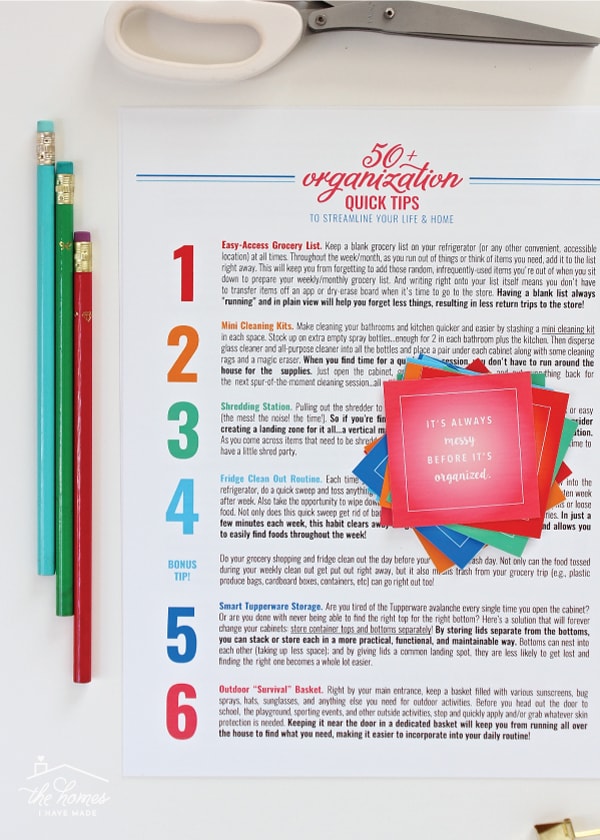 50+
organization
QUICK TIPS
TO STREAMLINE YOUR LIFE & HOME
1
Easy-Access Grocery List. Keep a blank grocery list on your refrigerator (or any other convenient, accessible
location) at all times. Throughout the week/month, as you run out of things or think of items you need, add it to the list
right away. This will keep you from forgetting to add those random, infrequently-used items you're out of when you sit
down to prepare your weekly/monthly grocery list. And writing right onto your list itself means you don't have
to transfer items off an app or dry erase board when it's time to go to the store. Having a blank list always
"running" and in plain view will help you forget less things, resulting in less return trips to the store!
2
Mini Cleaning Kits. Make cleaning your bathrooms and kitchen quicker and easier by stashing a mini cleaning kit
in each space. Stock up on extra empty spray bottles...enough for 2 in each bathroom plus the kitchen. Then disperse
glass cleaner and all-purpose cleaner into all the bottles and place a pair under each cabinet along with some cleaning
rags and a magic eraser. When you find time for a session, you don't have to run around the
house for the supplies. Just open the cabinet, thing back for
the next spur-of-the-moment cleaning session...all
3
Shredding Station. Pulling out the shredder to or easy
(the mess! the noise! the time!). So if you're
creating a landing zone for it all...a vertical
As you come across items that need to be time to
have a little shred party.
4
Fridge Clean Out Routine. Each time into the
refrigerator, do a quick sweep and toss week
after week. Also take the opportunity to wipe or loose
food. Not only does this quick sweep get rid of In just a
few minutes each week, this habit clears and allows you
to easily find foods throughout the week!
BONUS
TIP!
Do your grocery shopping and fridge clean out the day before your day. Not only can the food tossed
during your weekly clean out get put out right away, but it also trash from your grocery trip (e.g., plastic
produce bags, cardboard boxes, containers, etc) can go right out too!
5
Smart Tupperware Storage. Are you tired of the Tupperware avalanche every single time you open the cabinet?
Or are you done with never being able to find the right top for the right bottom? Here's a solution that will forever
change your cabinets: store container tops and bottoms separately! By storing lids separate from the bottoms,
you can stack or store each in a more practical, functional, and maintainable way. Bottoms can nest into
each other (taking up less space); and by giving lids a common landing spot, they are less likely to get lost and
finding the right one becomes a whole lot easier.
6
Outdoor "Survival" Basket. Right by your main entrance, keep a basket filled with various sunscreens, bug
sprays, hats, sunglasses, and anything else you need for outdoor activities. Before you head out the door to
school, the playground, sporting events, and other outside activities, stop and quickly apply and/or grab whatever skin
protection is needed. Keeping it near the door in a dedicated basket will keep you from running all over
the house to find what you need, making it easier to incorporate into your daily routine!
IT'S ALWAYS
messy
BEFORE IT'S
organized.
the homes
I HAVE MADE